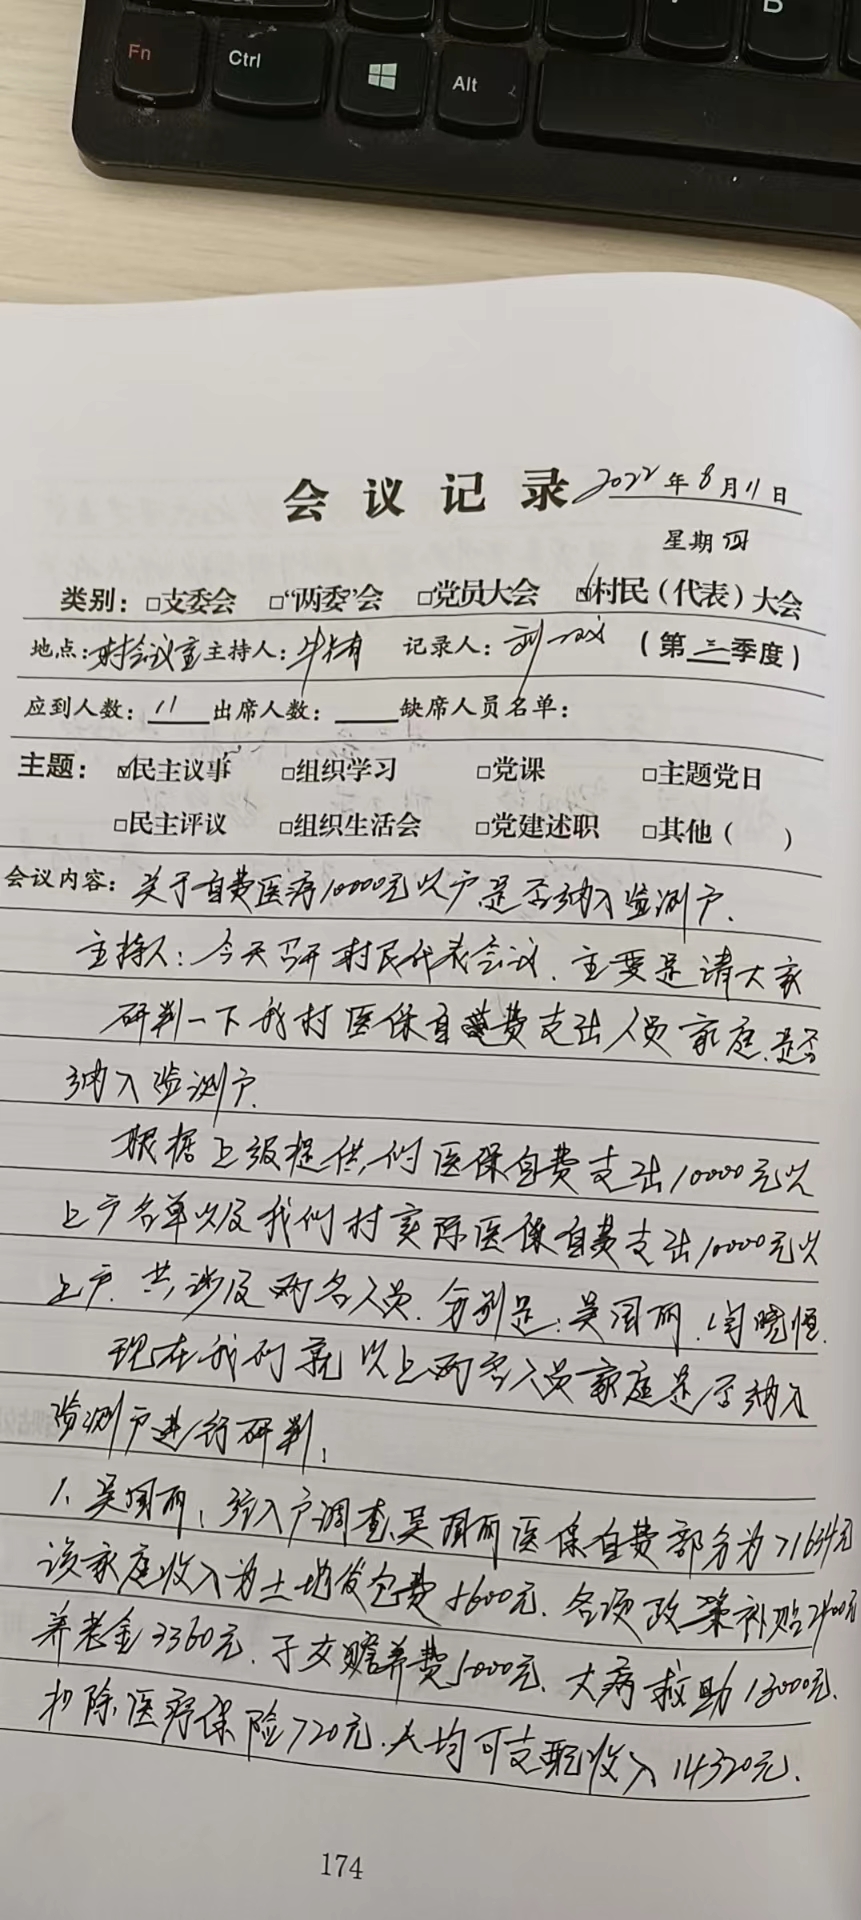 Fn Ctrl Alt B
会议记录 2022年8月11日
星期四
类别：□支委会 □“两委”会 □党员大会 ☑村民（代表）大会
地点：村会议室 主持人：牛 有 记录人：刘 （第三季度）
应到人数：11 出席人数： 缺席人员名单：
主题：☑民主议事 □组织学习 □党课 □主题党日
□民主评议 □组织生活会 □党建述职 □其他（ ）
会议内容：关于自费医疗10000元以户是否纳入监测户.
主持人：今天召开村民代表会议.主要是请大家
研判一下我村医保自费支出人员家庭.是否
纳入监测户.
根据上级提供的医保自费支出10000元以
上户名单以及我们村实际医保自费支出10000元以
上户.共涉及两名人员.分别是：吴国丽.闫晓恒.
现在我们就以上两名人员家庭是否纳入
监测户进行研判：
1、吴国丽：经入户调查，吴国丽医保自费部分为 元
该家庭收入为土地发包费5600元、各项政策补贴2400元
养老金3360元、子女赡养费5000元、大病救助13000元.
扣除医疗保险720元.人均可支配收入14320元.
174